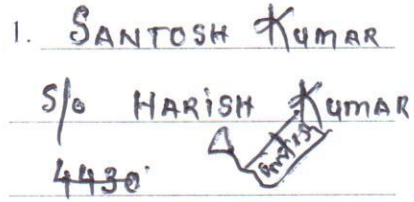 1. SANTOSH KUMAR
S/o HARISH KUMAR
4430